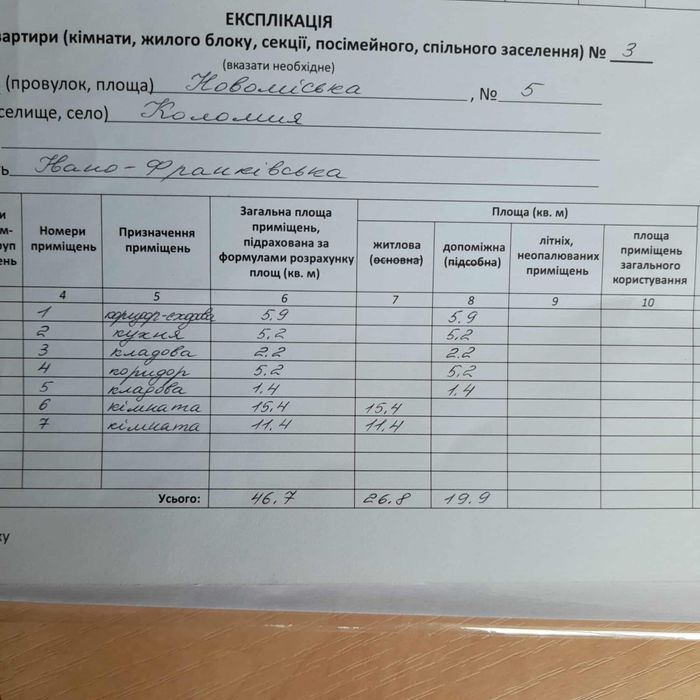 ЕКСПЛІКАЦІЯ
вартири (кімнати, жилого блоку, секції, посімейного, спільного заселення) № 3
(вказати необхідне)
(провулок, площа) Новоміська, № 5
селище, село) Коломия
ть Івано-Франківська
и
м-
руп
ень
Номери приміщень
Призначення приміщень
Загальна площа приміщень, підрахована за формулами розрахунку площ (кв. м)
Площа (кв. м)
житлова (основна)
допоміжна (підсобна)
літніх, неопалюваних приміщень
площа приміщень загального користування
4 5 6 7 8 9 10
1 коридор-сходова 5.9 5.9
2 кухня 5,2 5,2
3 кладова 2.2 2.2
4 коридор 5.2 5,2
5 кладова 1.4 1.4
6 кімната 15,4 15,4
7 кімната 11.4 11.4
Усього: 46.7 26.8 19.9
ку